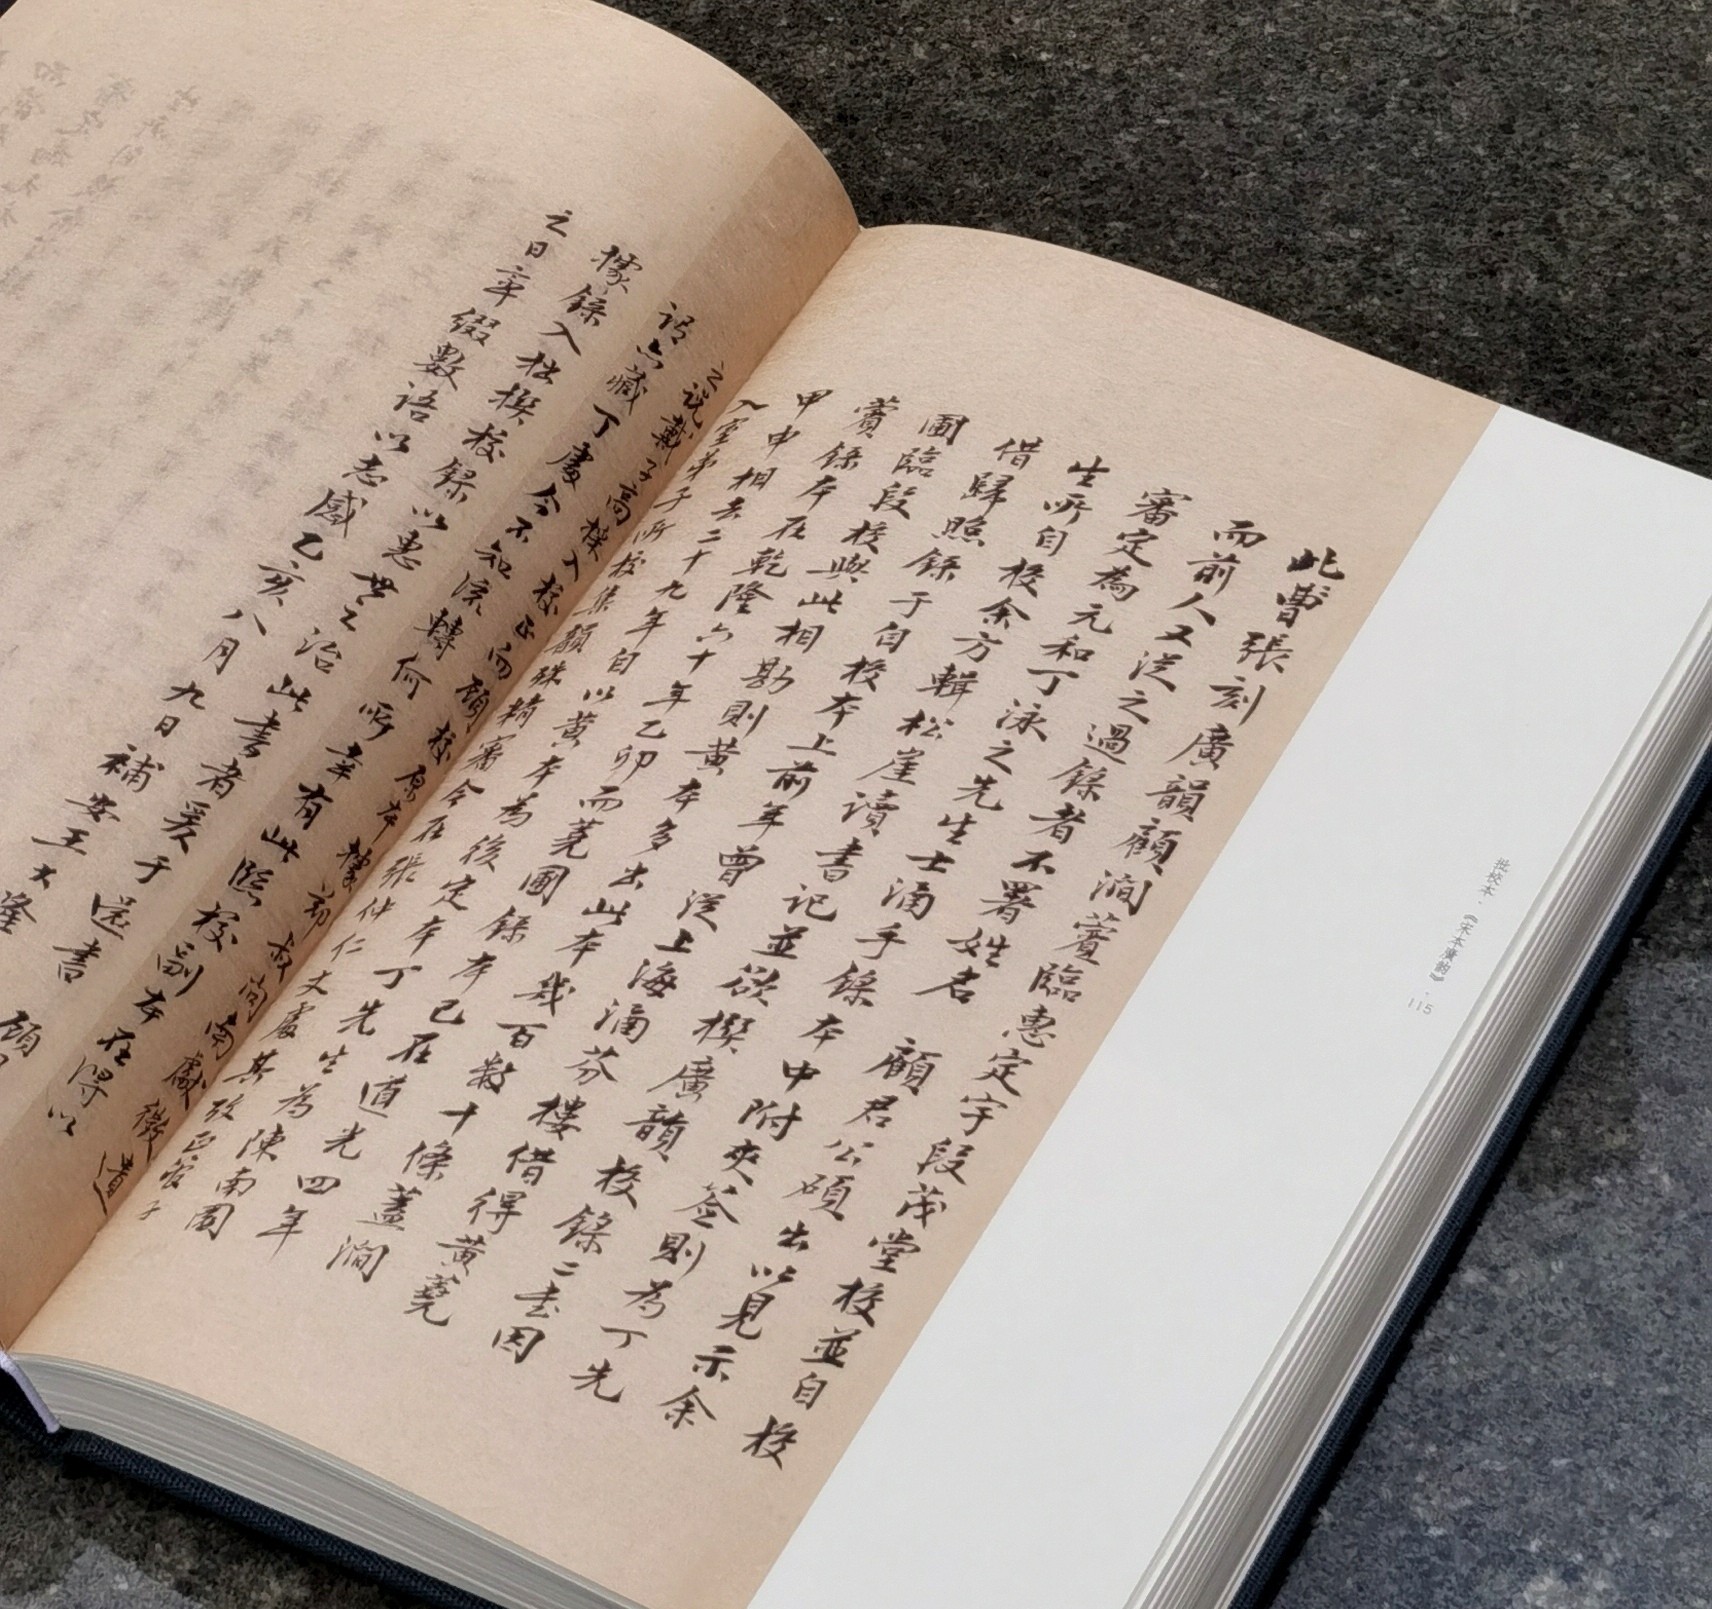 此曹張刻廣韻顧澗薲臨惠定宇段茂堂校並自校
而前人又從之過錄者不署姓名 顧君公碩出以見示余
審定為元和丁泳之先生士涵手錄本中附夾簽則為丁先
生所自校余方輯松崖讀書記並欲撰廣韻校錄二書因
借歸照錄于自校本上前年曾從上海涵芬樓借得黃蕘
圃臨段校與此相勘則黃本多出此本幾百數十條蓋澗
薲錄本在乾隆六十年乙卯而蕘圃錄本已在道光四年
甲申相去二十九年自以黃本為後定本丁先生為陳南園
入室弟子所校集韻殊精審今在張仲仁丈處其改正宸子
之說戴子高採入校正而顧校原本據鄭叔問南獻徵遺
謂亦藏丁處今不知流轉何所幸有此臨校副本在得以
據錄入拙撰校錄以惠世之治此書者爰于還書
之日率綴數語以志感乙亥八月九日補安王大隆
顧
批校本·《宋本廣韵》·115